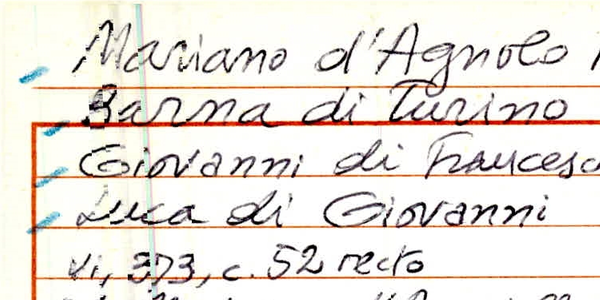 Mariano d'Agnolo
Barna di Turino
Giovanni di Francesco
Luca di Giovanni
Vi, 373, c. 52 recto